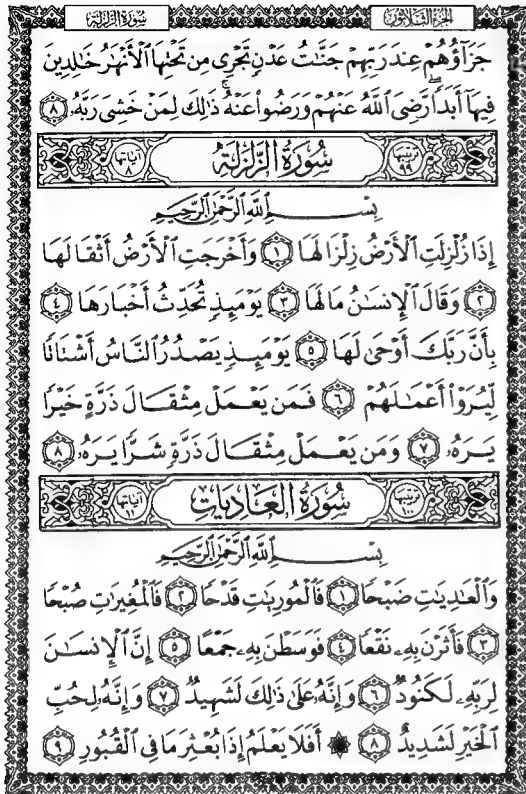 الجزء الثلاثون سورة الزلزلة
جَزَآؤُهُمْ عِندَ رَبِّهِمْ جَنَّٰتُ عَدْنٍ تَجْرِى مِن تَحْتِهَا ٱلْأَنْهَٰرُ خَٰلِدِينَ
فِيهَآ أَبَدًا ۖ رَّضِىَ ٱللَّهُ عَنْهُمْ وَرَضُوا۟ عَنْهُ ۚ ذَٰلِكَ لِمَنْ خَشِىَ رَبَّهُۥ ٨
ترتيبها ٩٩ سُورَةُ الزَّلْزَلَةِ آياتها ٨
بِسْمِ ٱللَّهِ ٱلرَّحْمَٰنِ ٱلرَّحِيمِ
إِذَا زُلْزِلَتِ ٱلْأَرْضُ زِلْزَالَهَا ١ وَأَخْرَجَتِ ٱلْأَرْضُ أَثْقَالَهَا
٢ وَقَالَ ٱلْإِنسَٰنُ مَا لَهَا ٣ يَوْمَئِذٍ تُحَدِّثُ أَخْبَارَهَا ٤
بِأَنَّ رَبَّكَ أَوْحَىٰ لَهَا ٥ يَوْمَئِذٍ يَصْدُرُ ٱلنَّاسُ أَشْتَاتًا
لِّيُرَوْا۟ أَعْمَٰلَهُمْ ٦ فَمَن يَعْمَلْ مِثْقَالَ ذَرَّةٍ خَيْرًا
يَرَهُۥ ٧ وَمَن يَعْمَلْ مِثْقَالَ ذَرَّةٍ شَرًّا يَرَهُۥ ٨
ترتيبها ١٠٠ سُورَةُ العَادِيَاتِ آياتها ١١
بِسْمِ ٱللَّهِ ٱلرَّحْمَٰنِ ٱلرَّحِيمِ
وَٱلْعَٰدِيَٰتِ ضَبْحًا ١ فَٱلْمُورِيَٰتِ قَدْحًا ٢ فَٱلْمُغِيرَٰتِ صُبْحًا
٣ فَأَثَرْنَ بِهِۦ نَقْعًا ٤ فَوَسَطْنَ بِهِۦ جَمْعًا ٥ إِنَّ ٱلْإِنسَٰنَ
لِرَبِّهِۦ لَكَنُودٌ ٦ وَإِنَّهُۥ عَلَىٰ ذَٰلِكَ لَشَهِيدٌ ٧ وَإِنَّهُۥ لِحُبِّ
ٱلْخَيْرِ لَشَدِيدٌ ٨ ۞ أَفَلَا يَعْلَمُ إِذَا بُعْثِرَ مَا فِى ٱلْقُبُورِ ٩